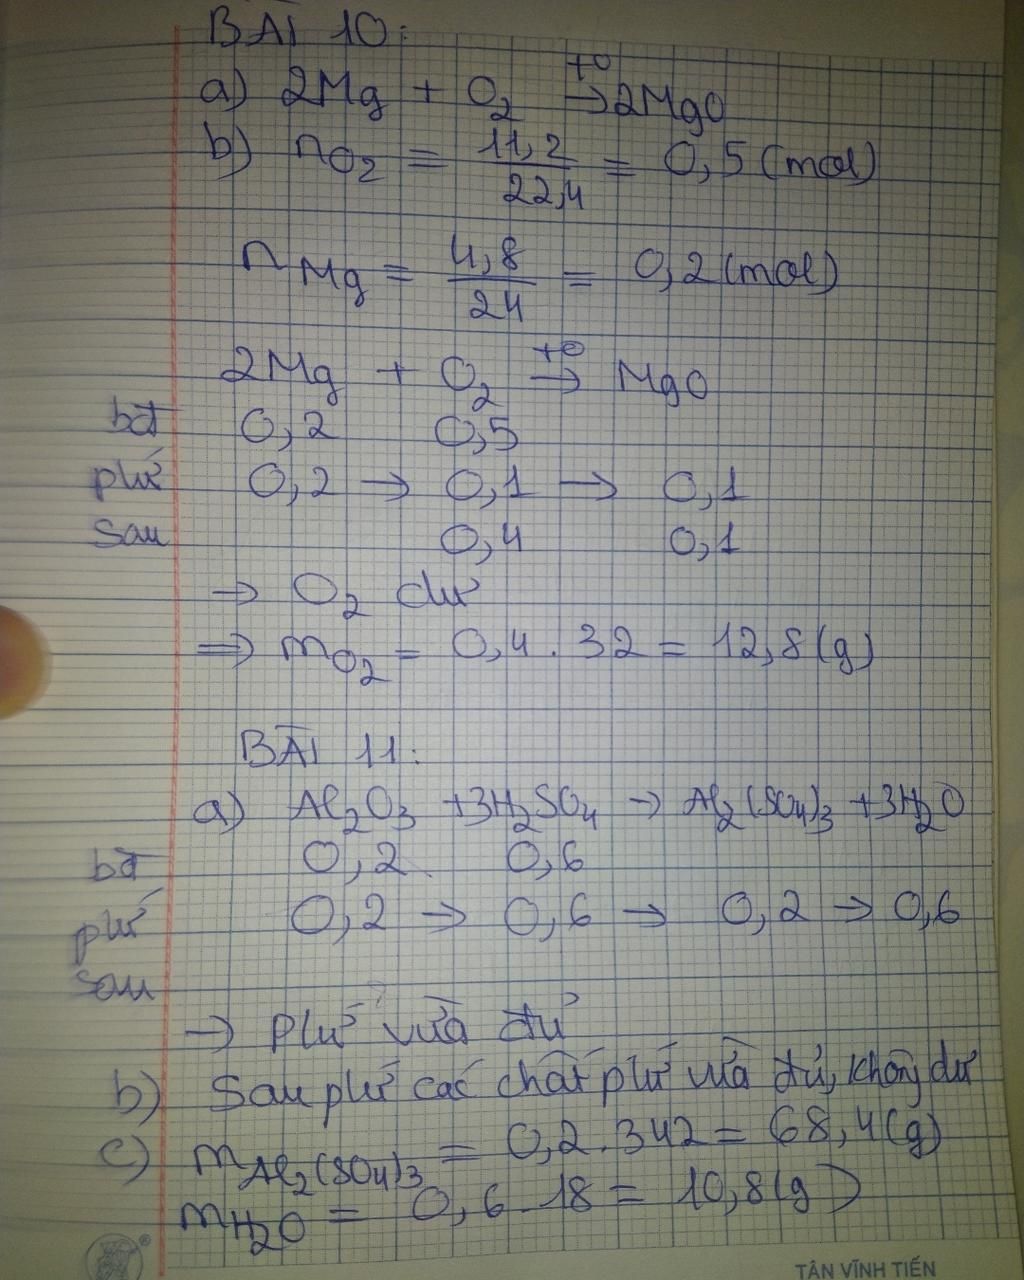 BÀI 10:
a) 2Mg + O2 t°→ 2MgO
b) nO2 = 11,2/22,4 = 0,5 (mol)
nMg = 4,8/24 = 0,2 (mol)
2Mg + O2 t°→ MgO
bđ 0,2 0,5
phứ 0,2 → 0,1 → 0,1
sau 0,4 0,1
→ O2 dư
⇒ mO2 = 0,4 . 32 = 12,8 (g)
BÀI 11:
a) Al2O3 + 3H2SO4 → Al2(SO4)3 + 3H2O
bđ 0,2 0,6
phứ 0,2 → 0,6 → 0,2 → 0,6
sau
→ phứ vừa đủ
b) Sau phứ các chất phứ vừa đủ, không dư
c) mAl2(SO4)3 = 0,2 . 342 = 68,4 (g)
mH2O = 0,6 . 18 = 10,8 (g)
®
TÂN VĨNH TIẾN